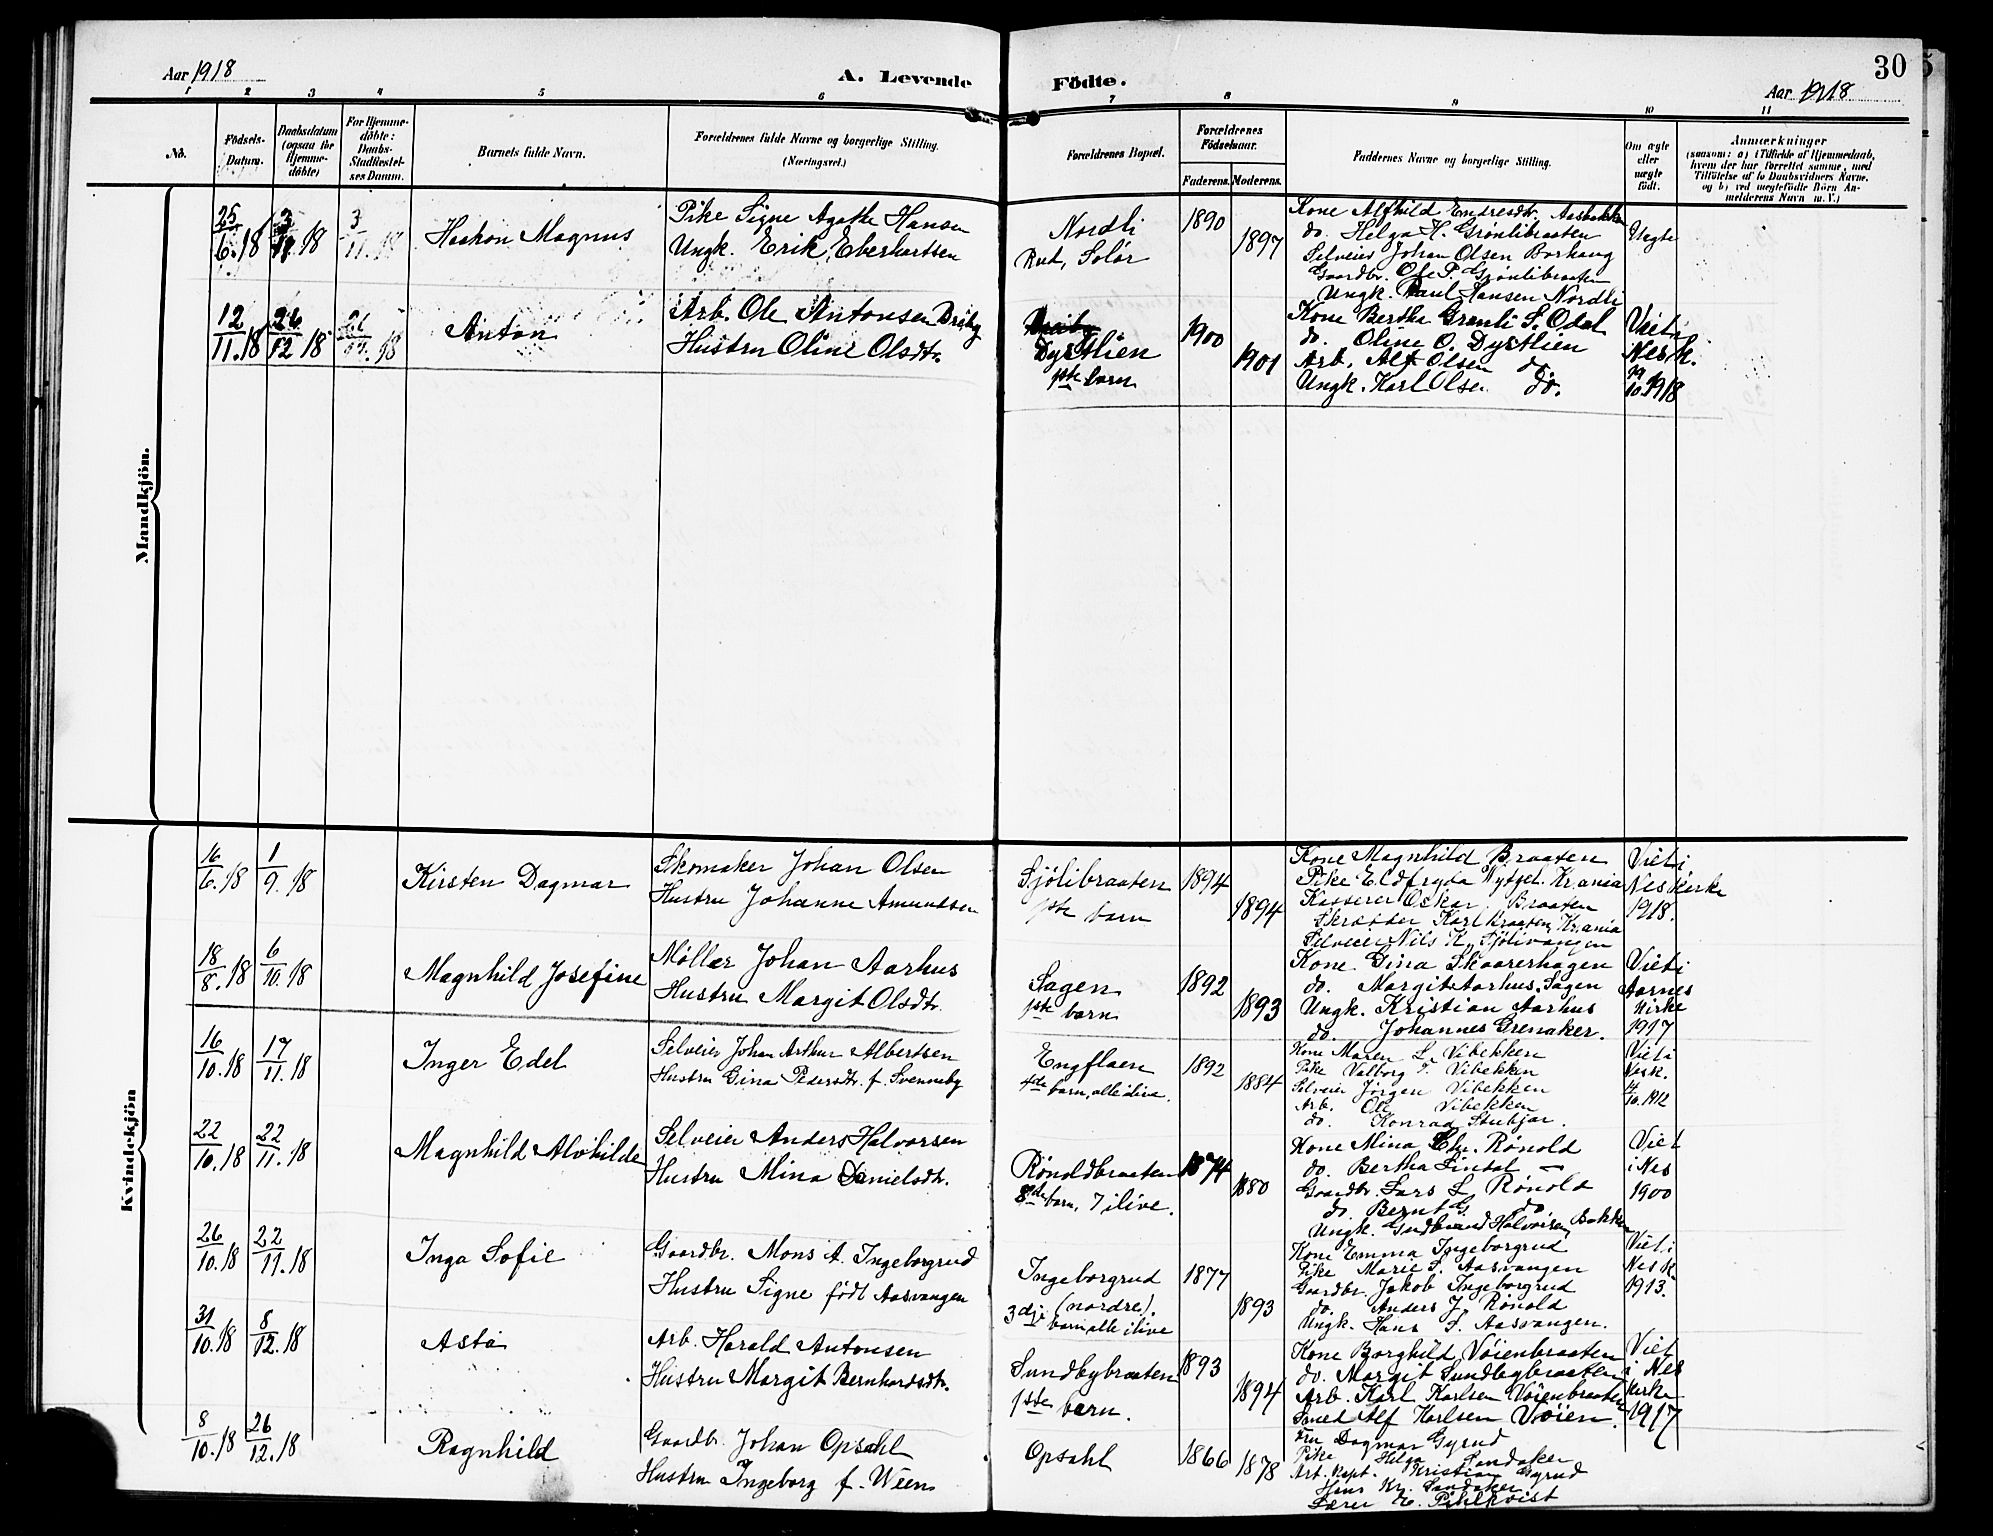 Aar 1918
A. Levende
Födte.
30
Aar 1918
1 2 3 4 5 6 7 8 9 10 11
No.
Födsels-
Datum.
Daabsdatum
(ogsaa for
Hjemme-
döbte)
For Hjemme-
döbte:
Daabs-
Stadfæstel-
ses Datum.
Barnets fulde Navn.
Forældrenes fulde Navne og borgerlige Stilling.
(Næringsvei.)
Forældrenes Bopæl.
Forældrenes
Födselsaar.
Faderens. Moderens.
Faddernes Navne og borgerlige Stilling.
Om ægte
eller
uægte
födt.
Anmærkninger
(saasom: a) i Tilfælde af Hjemmedaab,
hvem der har forrettet samme, med
Tilföielse af to Daabsvidners Navne,
og b) ved uægtefödte Börn An-
melderens Navn m. V.)
Mandkjön.
25/6.18 3/11 18 3/11.18
Haakon Magnus
Pike Signe Agathe Hansen
Ungk. Erik Eberhartsen
Nordli
Rud, Solør
1890
1897
Kone Alfhild Endresdtr. Aasbakken
do. Helga H. Grønlibraaten
Selveier Johan Olsen Borhaug
Gaardbr. Ole P. Grønlibraaten
Ungk. Paul Hansen Nordli
Uegte
12/11.18 26/12 18 26/12.18
Anton
Arb. Ole Antonsen Driby
Hustru Oline Olsdtr.
Dystlien
1ste barn
1900
1901
Kone Bertha Grønli S. Odal
do. Oline O. Dystlien
Arb. Alf Olsen do.
Ungk. Karl Olsen do.
Viet i
Nes k.
19/10.1918
Kvindekjön
16/6.18 1/9.18
Kirsten Dagmar
Skomaker Johan Olsen
Hustru Johanne Amundsen
Sjölibraaten
1ste barn
1894
1894
Kone Magnhild Braaten
Pike Eldfryda Nytzel. Kr.ania
Kasserer Oskar Braaten
Skrædder Karl Braaten, Kr.ania
Selveier Nils K. Sjölivangen
Viet i
Nes Kirke
1918.
18/8.18 6/10.18
Magnhild Josefine
Møller Johan Aarhus
Hustru Margit Olsdtr.
Sagen
1ste barn
1892
1893
Kone Gina Skaarerhagen
do. Margit Aarhus. Sagen
Ungk. Kristian Aarhus
do. Johannes Grenaker.
Viet i
Aarnes
Kirke
1917
16/10.18 17/11.18
Inger Edel
Selveier Johan Arthur Albertsen
Hustru Gina Pedersdtr. f. Svenneby
Engflaen
4de barn, alle ilive.
1892
1884
Kone Maren L. Vibekken
Pike Valborg T. Vibekken
Selveier Jörgen Vibekken
Arb. Ole Vibekken
do. Konrad Stubjar.
Viet i
Nes k.
4/10.1912
22/10.18 22/11.18
Magnhild Alvhilde
Selveier Anders Halvorsen
Hustru Mina Danielsdtr.
Rønoldbraaten
8de barn, 7 ilive.
1874
1880
Kone Mina Chr. Rønold
do. Bertha Lintal
Gaardbr. Lars L. Rønold
do. Bernt G. do
Ungk. Gudbrand Halvorsen, Bakken
Viet
i Nes
1900
26/10.18 22/11.18
Inga Sofie
Gaardbr. Mons A. Ingeborgrud
Hustru Signe født Aasvangen
Ingeborgrud
(nordre).
3dje barn alle ilive
1877
1893
Kone Emma Ingeborgrud
Pike Marie S. Aasvangen
Gaardbr. Jakob Ingeborgrud
do. Anders J. Rønold
Ungk. Hans S. Aasvangen.
Viet i
Nes K.
1913.
31/10.18 8/12.18
Asta
Arb. Harald Antonsen
Hustru Margit Bernhardsdtr.
Sundbybraaten
1ste barn.
1893
1894
Kone Borghild Vøienbraaten
do. Margit Sundbybraaten
Arb. Karl Karlsen Vøienbraaten
Smed Alf Karlsen Vøien.
Viet
i Nes
Kirke
1917
8/10.18 26/12.18
Ragnhild
Gaardbr. Johan Opsahl
Hustru Ingeborg f. Ween
Opsahl
1866
1878
Fru Dagmar Gyrud
Pike Helga Sandaker
Art. Kapt. Kristian Gyrud
Hans Kr. Sandaker
Lærer E. Pihlkvist